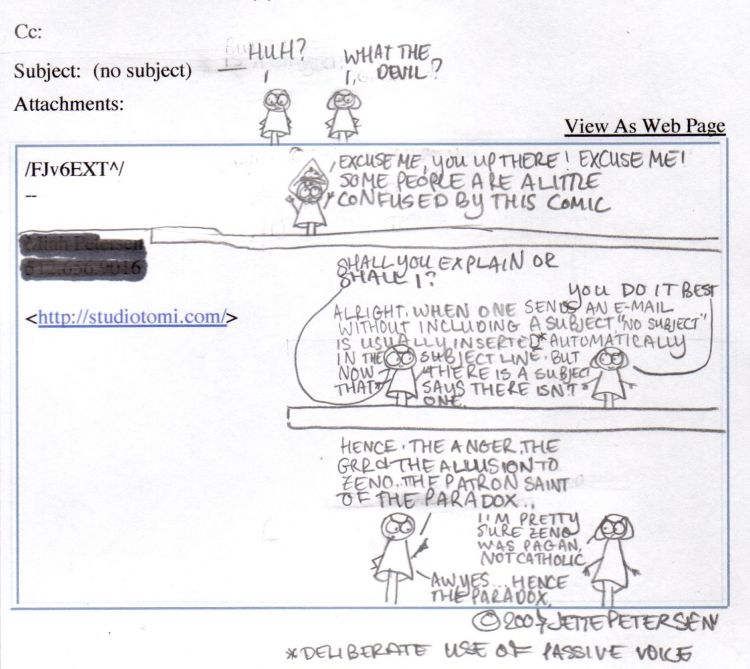 Cc:
HUH?
WHAT THE
DEVIL?
Subject: (no subject)
Attachments:
View As Web Page
/FJv6EXT^/
--
EXCUSE ME, YOU UP THERE! EXCUSE ME!
SOME PEOPLE ARE A LITTLE
CONFUSED BY THIS COMIC
<http://studiotomi.com/>
SHALL YOU EXPLAIN OR
SHALL I?
YOU DO IT BEST
ALRIGHT, WHEN ONE SENDS AN E-MAIL
WITHOUT INCLUDING A SUBJECT "NO SUBJECT"
IS USUALLY INSERTED* AUTOMATICALLY
IN THE SUBJECT LINE, BUT
NOW THERE IS A SUBJECT
THAT SAYS THERE ISN'T
ONE.
HENCE, THE ANGER, THE
GRR & THE ALLUSION TO
ZENO, THE PATRON SAINT
OF THE PARADOX..
I'M PRETTY
SURE ZENO
WAS PAGAN,
NOT CATHOLIC
AW, YES... HENCE
THE PARADOX.
© 2007 JETTE PETERSEN
*DELIBERATE USE OF PASSIVE VOICE